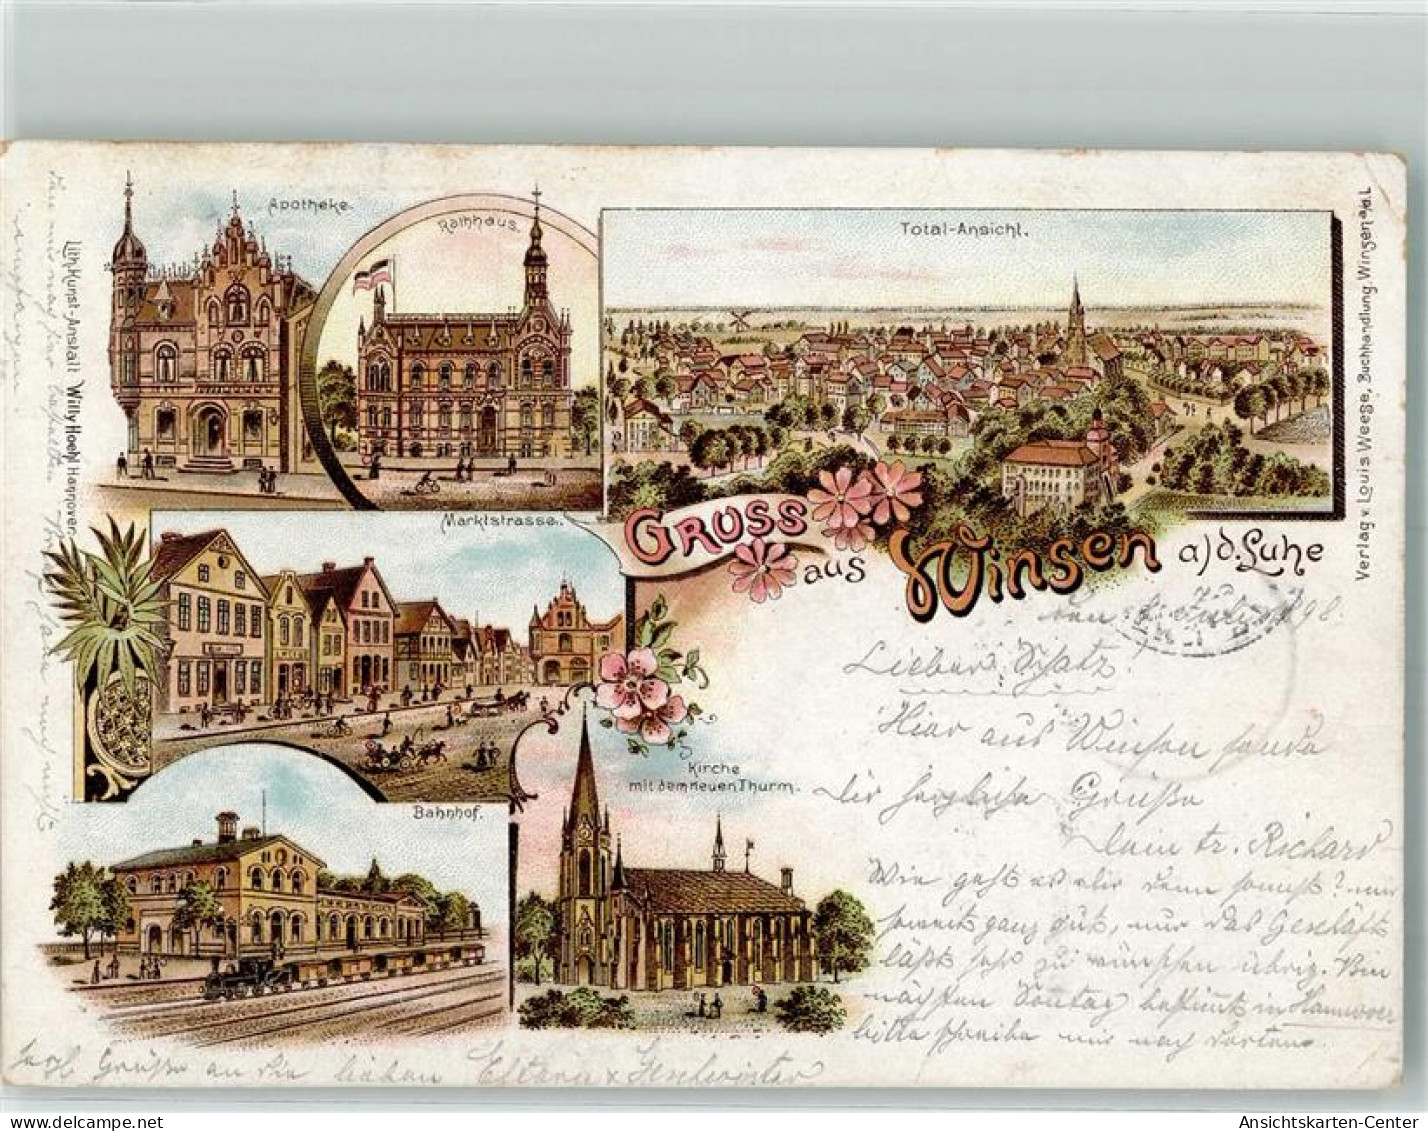 Apotheke.
Rathhaus.
Total-Ansicht.
Marktstrasse.
Gruss
aus
Winsen a/d. Luhe
Kirche
mit dem neuen Thurm.
Bahnhof.
Lith. Kunst-Anstalt Willy Hoehl Hannover
Verlag v. Louis Weese, Buchhandlung, Winsen
Juli 98.
Lieber Schatz!
Hier aus Winsen sende
Dir herzliche Grüße
Dein tr. Richard
Wie geht es dir denn sonst? mir
soweit ganz gut, nur das Geschäft
läßt sehr zu wünschen übrig. Bin
nächsten Sonntag bestimmt in Hannover
bitte schreibe mir nach dorten.
Grüße an die lieben Eltern & Geschwister
Ansichtskarten-Center